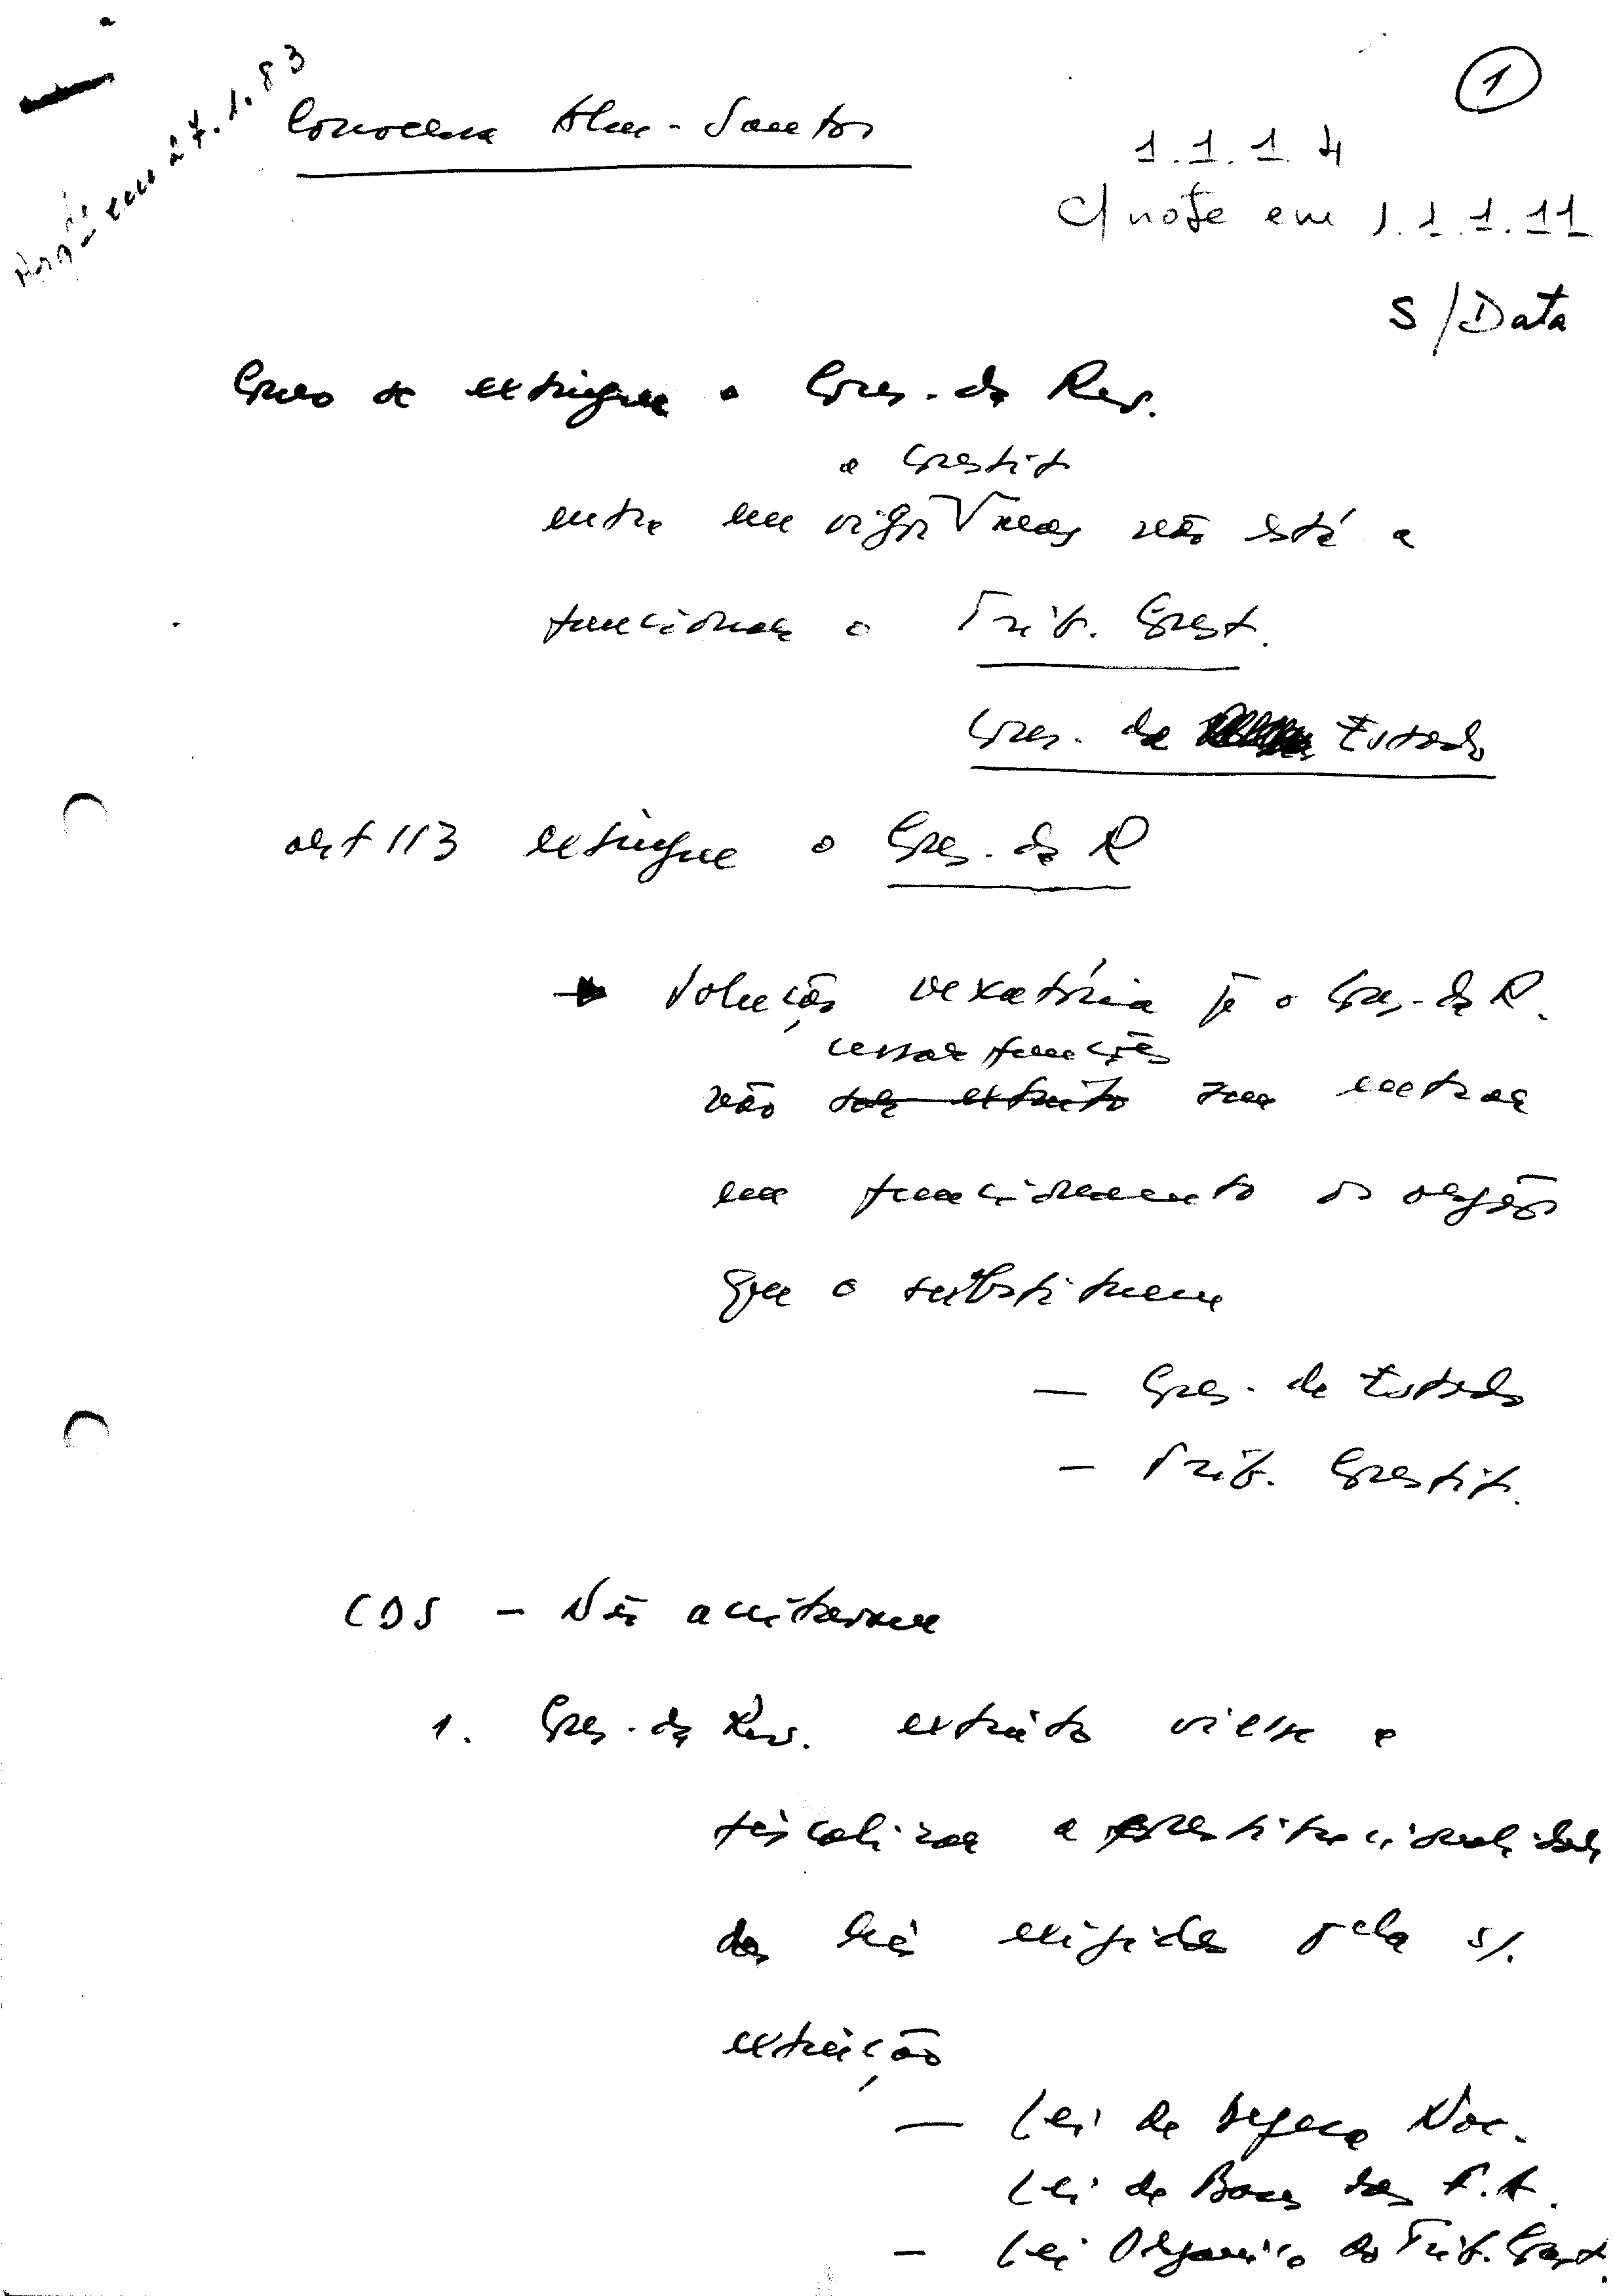 1
em 27.1.83
Conversa Alm. Santos
1.1.1.4
c/ note em 1.1.1.11
S/Data
Como se extingue o Cons. da Rev.
a Constit
entra em vigor V mas não está a
funcionar o Trib. Const.
Cons. de Estado
art 113 extingue o Cons. da R
Solução vexatória p/ o Cons. da R.
cessar funções
não ser extinto sem entrar
em funcionamento os orgãos
que o substituem
— Cons. de Estado
— Trib. Constit.
CDS — Não aceitavam
1. Cons. da Rev. extinto viesse a
fiscalizar a constitucionalidade
das leis exigidas pela s/.
extinção
— Lei de Defesa Nac.
Lei de Bases das F.A.
— Lei Organica do Trib. Const.